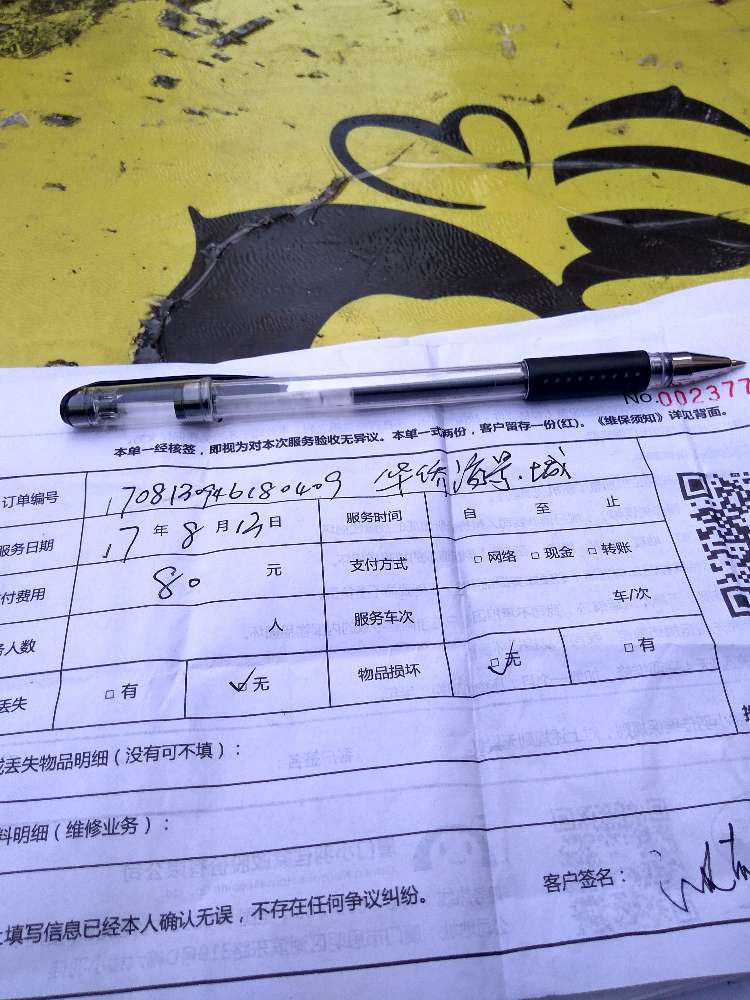 No.002377
本单一经核签，即视为对本次服务验收无异议。本单一式两份，客户留存一份(红)。《维保须知》详见背面。
订单编号 1708130946180409 华侨海景城
服务日期 17 年 8 月 13 日 服务时间 自 至 止
付费用 80 元 支付方式 □ 网络 □ 现金 □ 转账
人数 人 服务车次 车/次
丢失 □ 有 ☑ 无 物品损坏 ☑ 无 □ 有
丢失物品明细（没有可不填）：
料明细（维修业务）：
上填写信息已经本人确认无误，不存在任何争议纠纷。
客户签名：